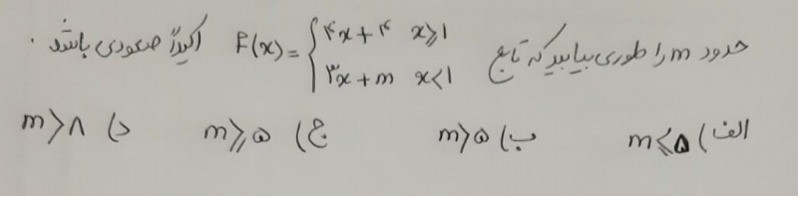 حدود m را طوری بیابید که تابع f(x)={۴x+۴ x⩾1 ۳x+m x<1 اکیداً صعودی باشد.
الف) m⩽۵ ب) m>۵ ج) m⩾۵ د) m>۸